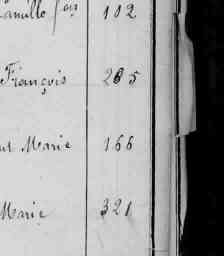 Camille fois 102
François 265
Marie 166
Marie 321